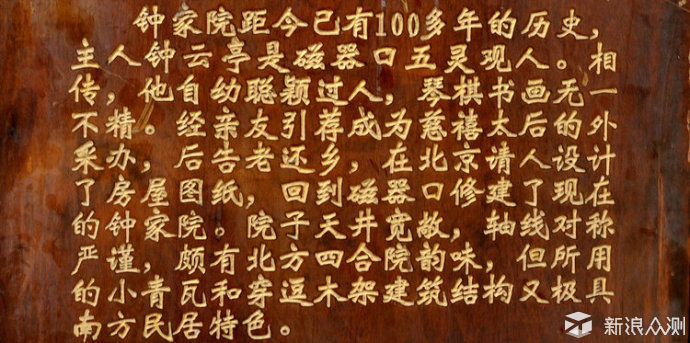 钟家院距今已有100多年的历史，
主人钟云亭是磁器口五灵观人。相
传，他自幼聪颖过人，琴棋书画无一
不精。经亲友引荐成为慈禧太后的外
采办，后告老还乡，在北京请人设计
了房屋图纸，回到磁器口修建了现在
的钟家院。院子天井宽敞，轴线对称
严谨，颇有北方四合院韵味，但所用
的小青瓦和穿逗木架建筑结构又极具
南方民居特色。
新浪众测